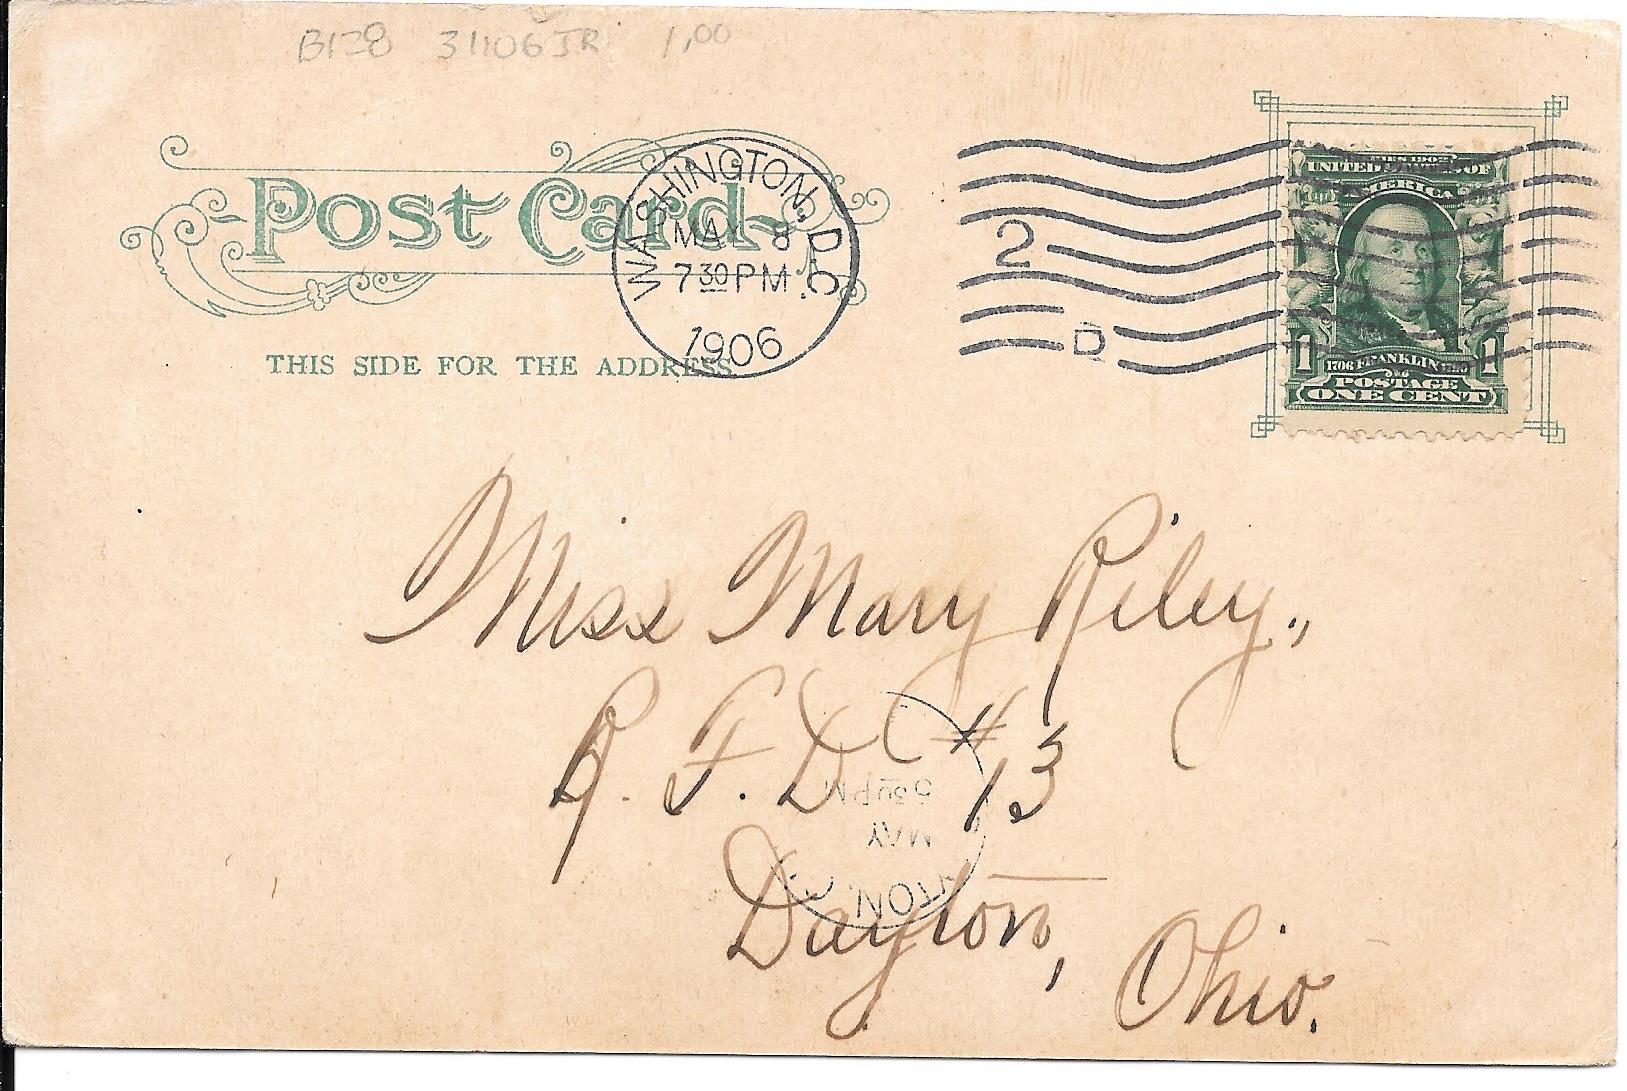 B128 31106JR 1,00
Post Card
THIS SIDE FOR THE ADDRESS
WASHINGTON, D.C.
MAY 8
7 30 PM
1906
2
D
SERIES 1902
UNITED STATES OF
AMERICA
1 1
1706 FRANKLIN 1790
POSTAGE
ONE CENT
Miss Mary Riley.,
R. F. D # 13
Dayton, Ohio.
5 30 PM
MAY
TON, O